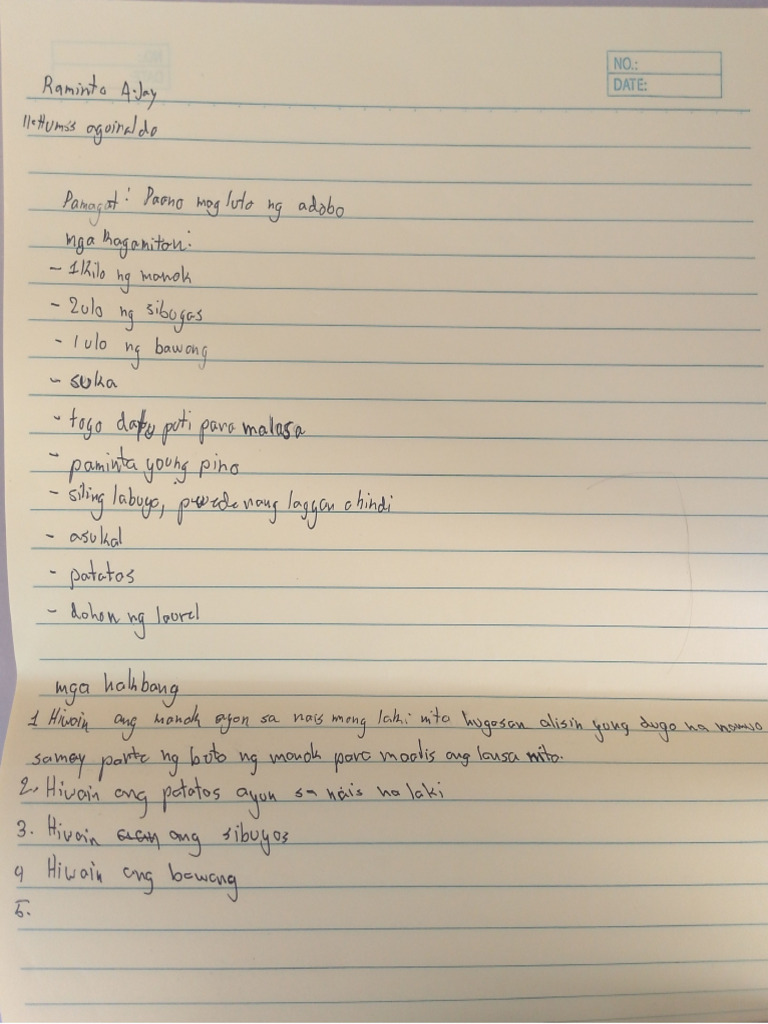 NO.:
DATE:
Raminto A-Jay
11-Humss aguinaldo
Pamagat: Paano mag luto ng adobo
mga kagamitan:
- 1kilo ng manok
- 2ulo ng sibuyas
- 1 ulo ng bawang
- suka
- toyo datu puti para malasa
- paminta young pino
- siling labuyo, pwede nang lagyan o hindi
- asukal
- patatas
- dahon ng laurel
mga hakbang
1 Hiwain ang manok ayon sa nais mong laki nito hugasan alisin yung dugo na
samay parte ng buto ng manok para maalis ang lansa nito.
2. Hiwain ang patatas ayon sa nais na laki
3. Hiwain ang sibuyas
4 Hiwain ang bawang
5.